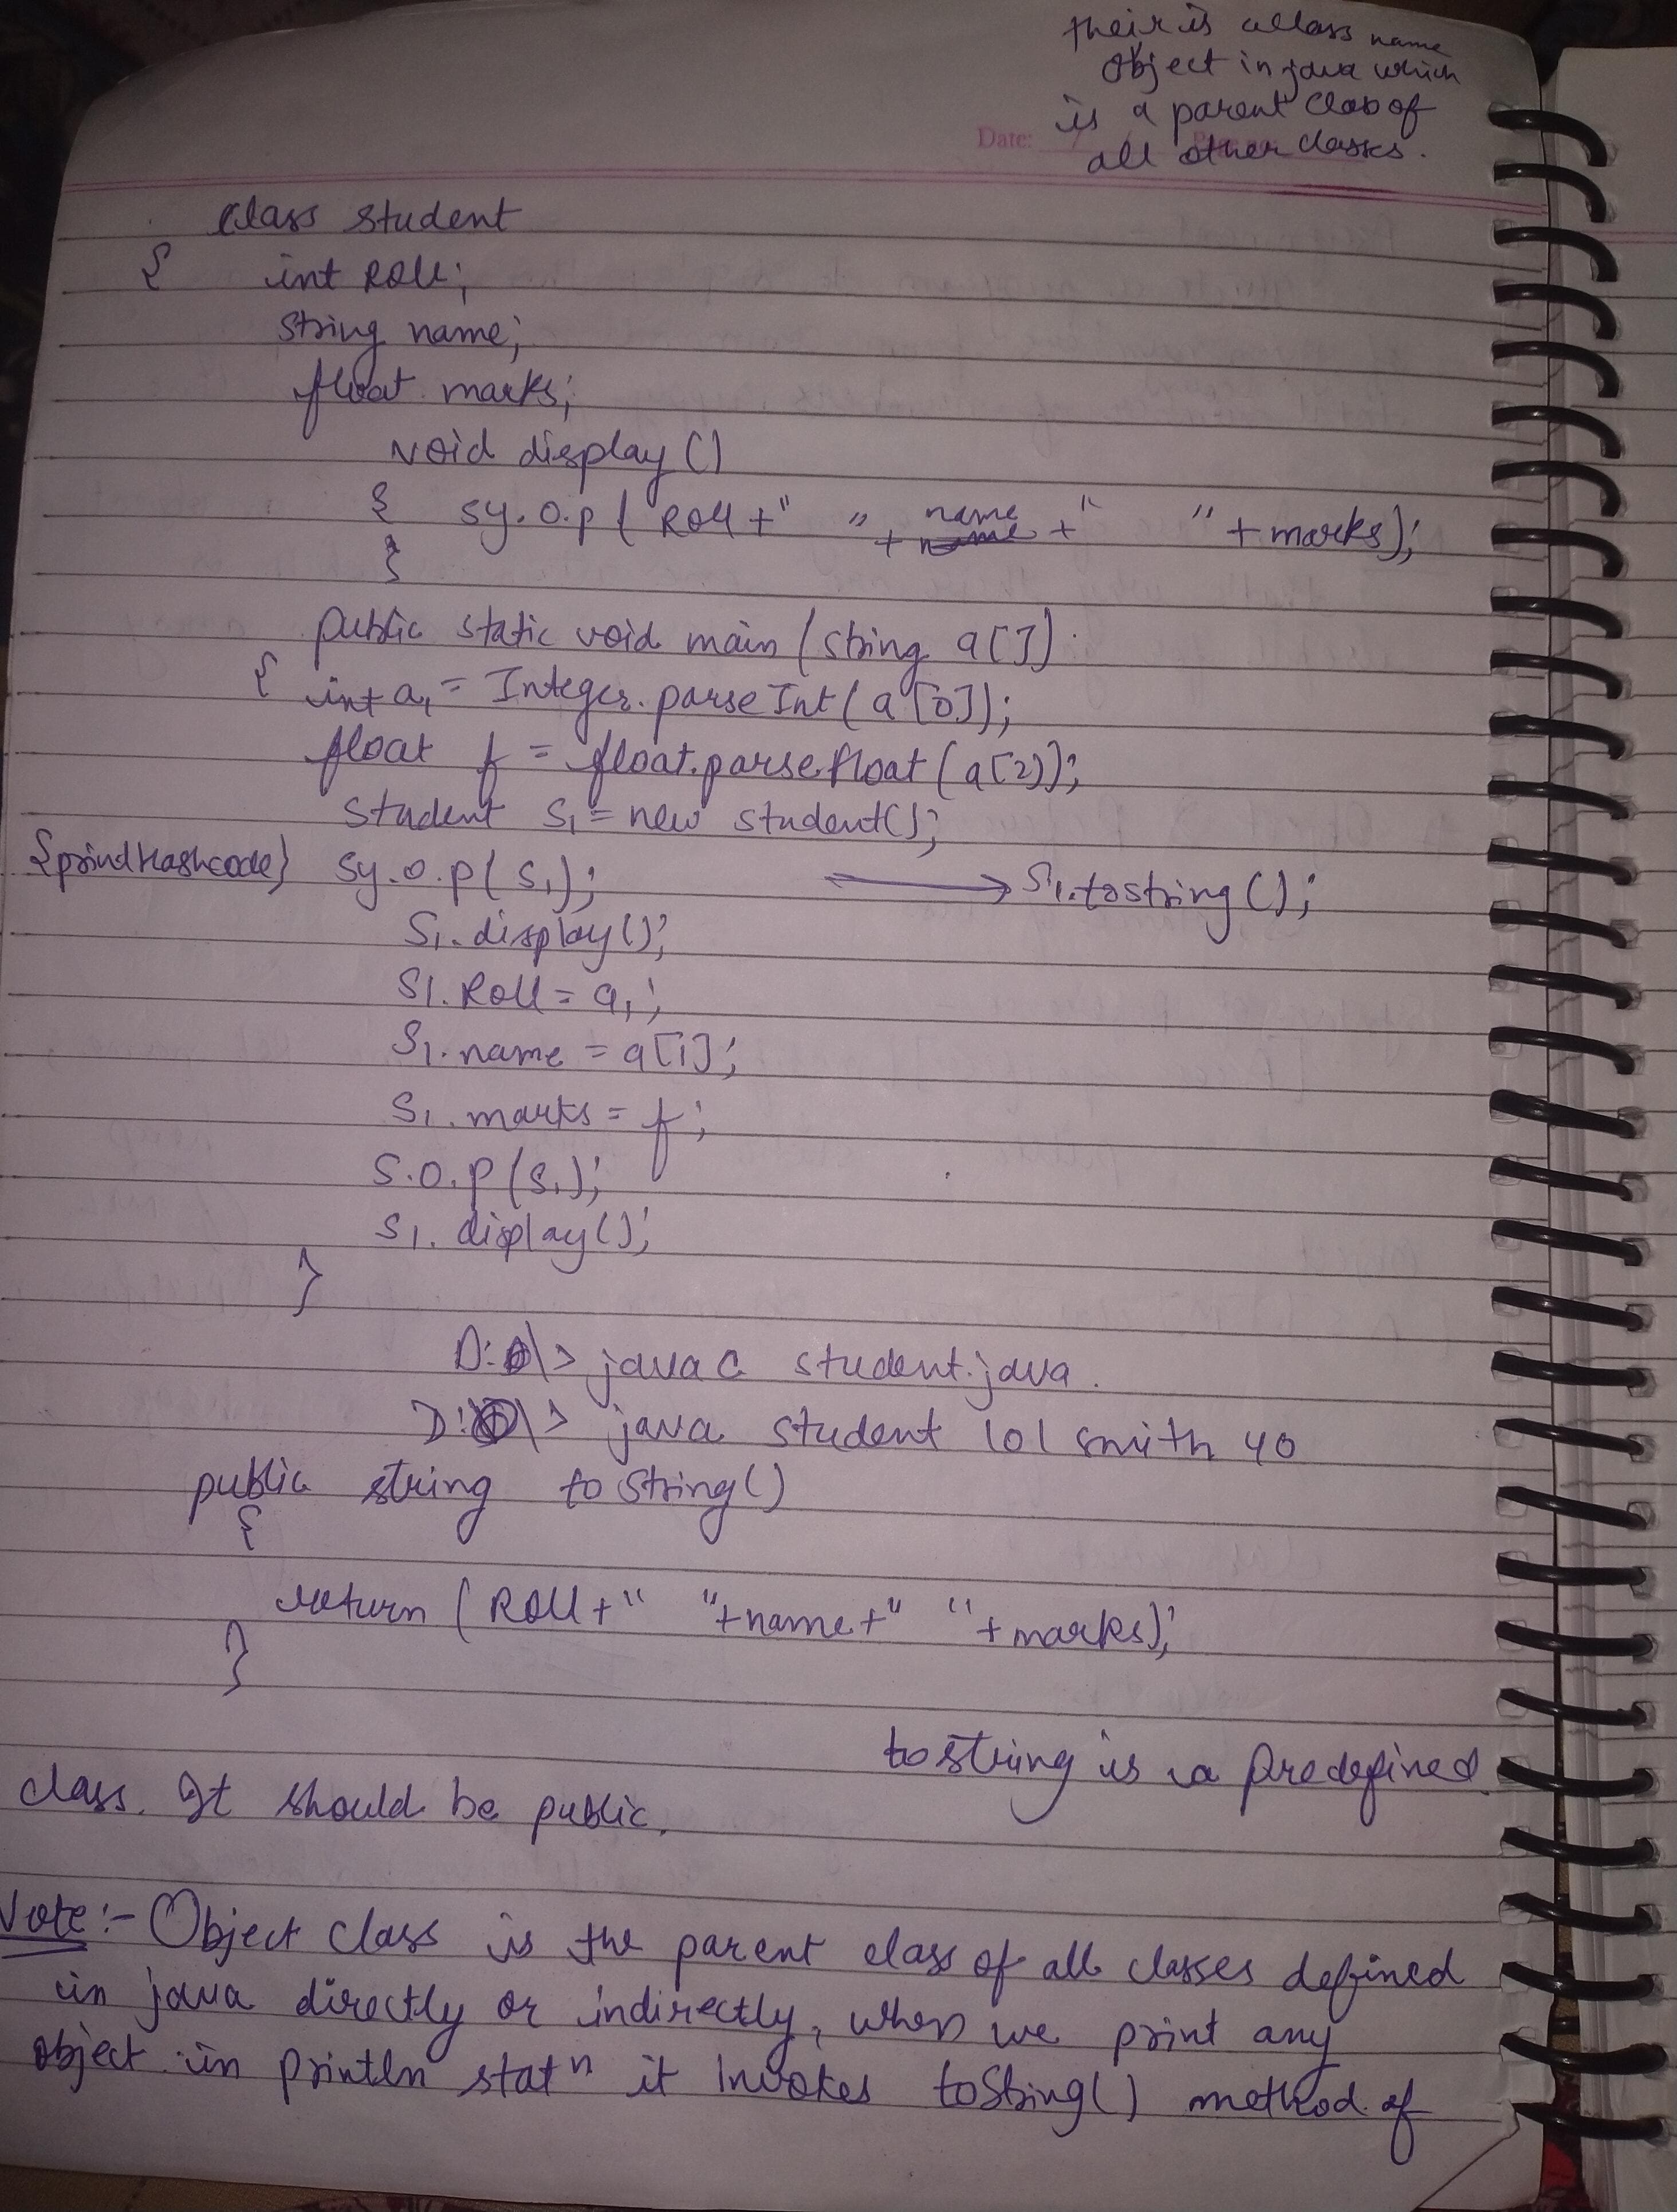 their is a class name
Object in java which
is a parent class of
all other classes.
Date:
class student
{ int Roll;
string name;
float marks;
void display ()
{ sy.o.p ( Roll + " " + name + " " + marks);
}
public static void main (string a[])
{ int a1 = Integer.parseInt ( a[0]);
float f = float.parsefloat (a[2]);
student s1 = new student();
{print Hashcode} sy.o.p( s1 ); → S1.tostring ();
S1.display();
S1.Roll = a1;
S1.name = a[1];
S1.marks = f;
S.O.P (s1);
S1.display();
}
D:\> javac student.java.
D:\> java student 101 smith 40
public string to String()
{
return ( Roll + " " + name + " " + marks);
}
to string is a Predefined
class. It should be public.
Note:- Object class is the parent class of all classes defined
in java directly or indirectly, when we print any
object in println statn it Invokes toString() method of